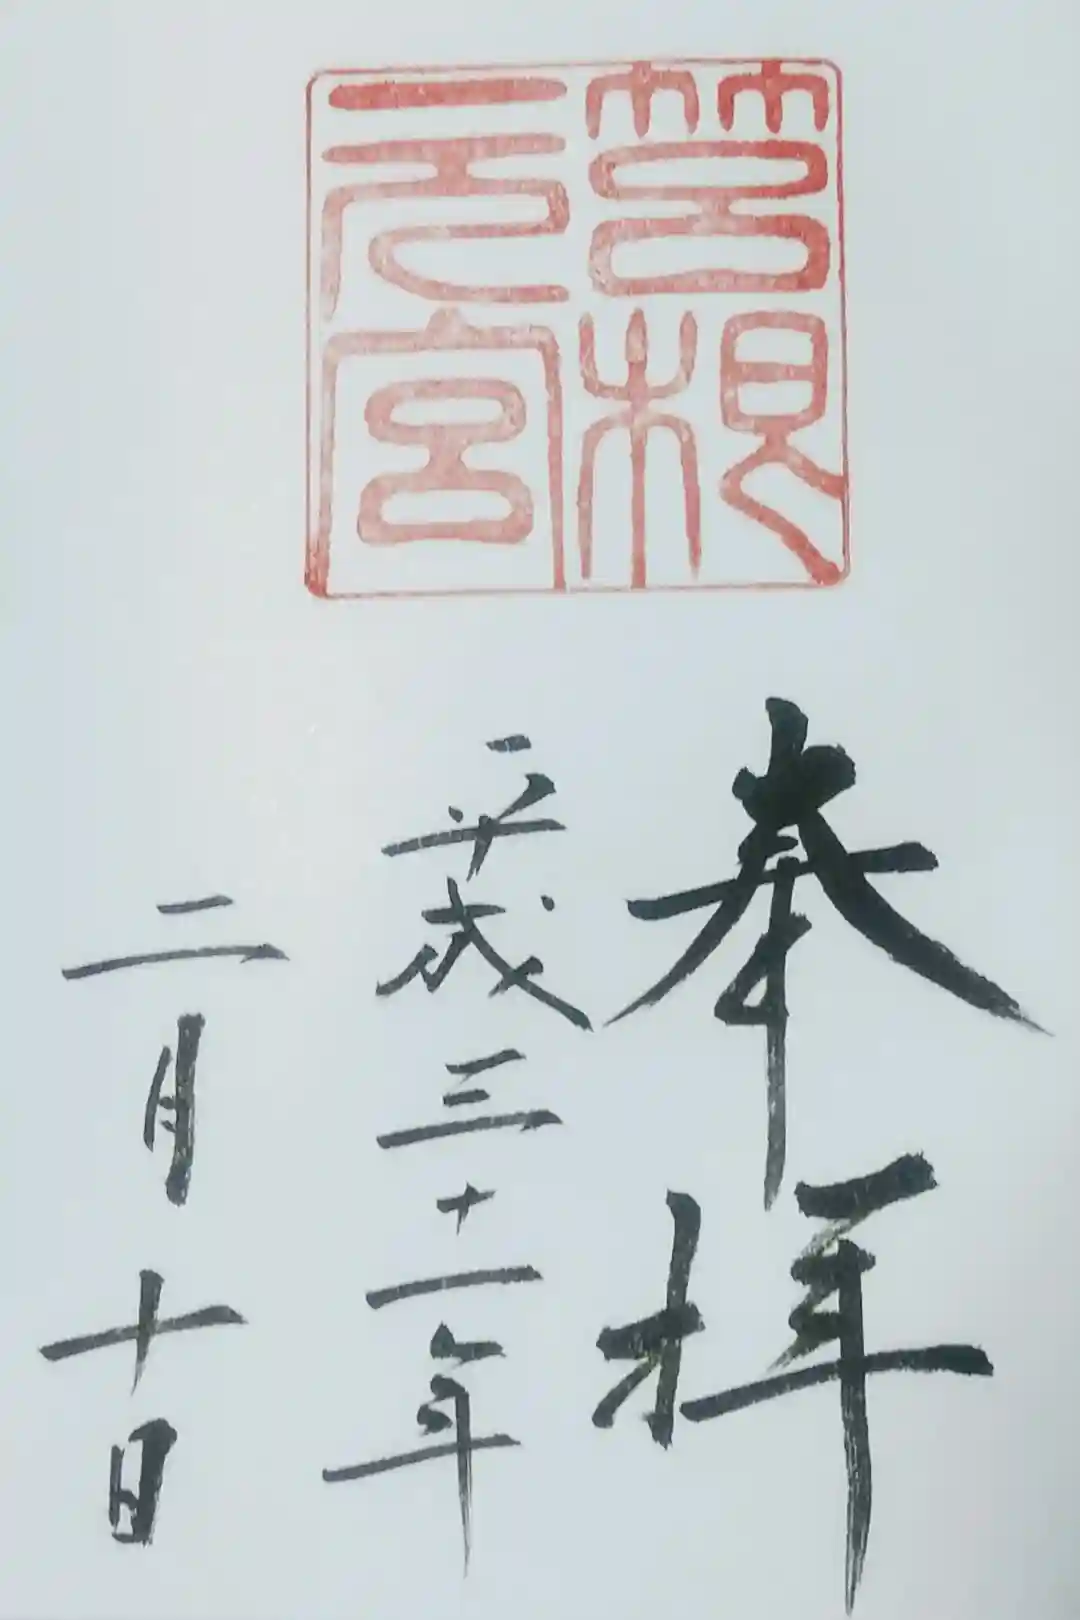 筥根
元宮
奉拝
平成三十一年
二月十日